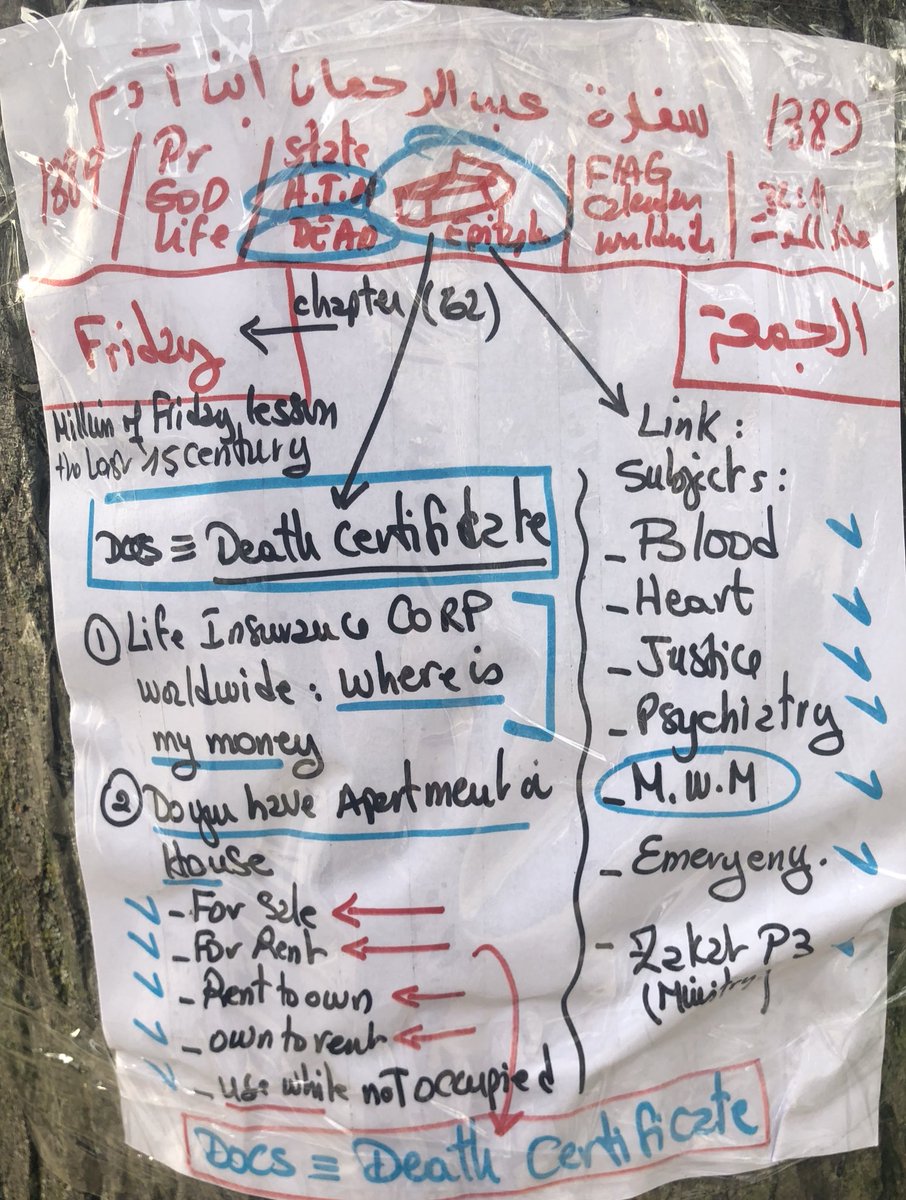 سفارة عبد الرحمان ابن آدم
1389
1389
Pr
GOD
Life
State
H.T.M
DEAD
FlAG
worldwide
Friday
chapter (62)
الجمعة
Million of Friday lesson
the last 15 century
Docs ≡ Death Certificate
① Life Insurance CORP
worldwide : where is
my money
② Do you have Apartment or
House
- For Sale
- For Rent
- Rent to own
- own to rent
- Use while not occupied
Link :
Subjects :
- Blood
- Heart
- Justice
- Psychiatry
- M.W.M
- Emergeny.
- Zakat P3
(Ministry)
Docs ≡ Death Certificate